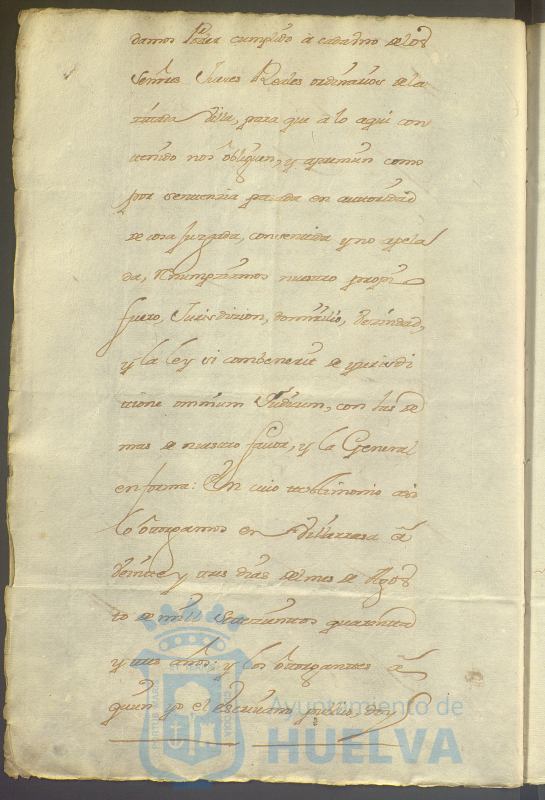 damos Poder cumplido a cada uno de los
Señores Jueces Reales ordinarios de la
citada villa, para que a lo aqui con
tenido nos obliguen, y apremien como
por sentencia pasada en autoridad
de cosa juzgada, consentida y no apela
da, Renumpziamos nuestro propio
fuero, Jurisdizion, domizilio, Vezindad,
y la ley si combenerit de yurisdi
tione omnium Judicum, con las de
mas de nuestro favor, y la General
en forma: En cuio testimonio asi
lo otorgamos en Villarrasa a
veinte y tres dias del mes de Agos
to de mil setezientos quarenta
y tres años: y los otorgantes a
quien yo el escrivano publico, doy
Ayuntamiento de
HUELVA